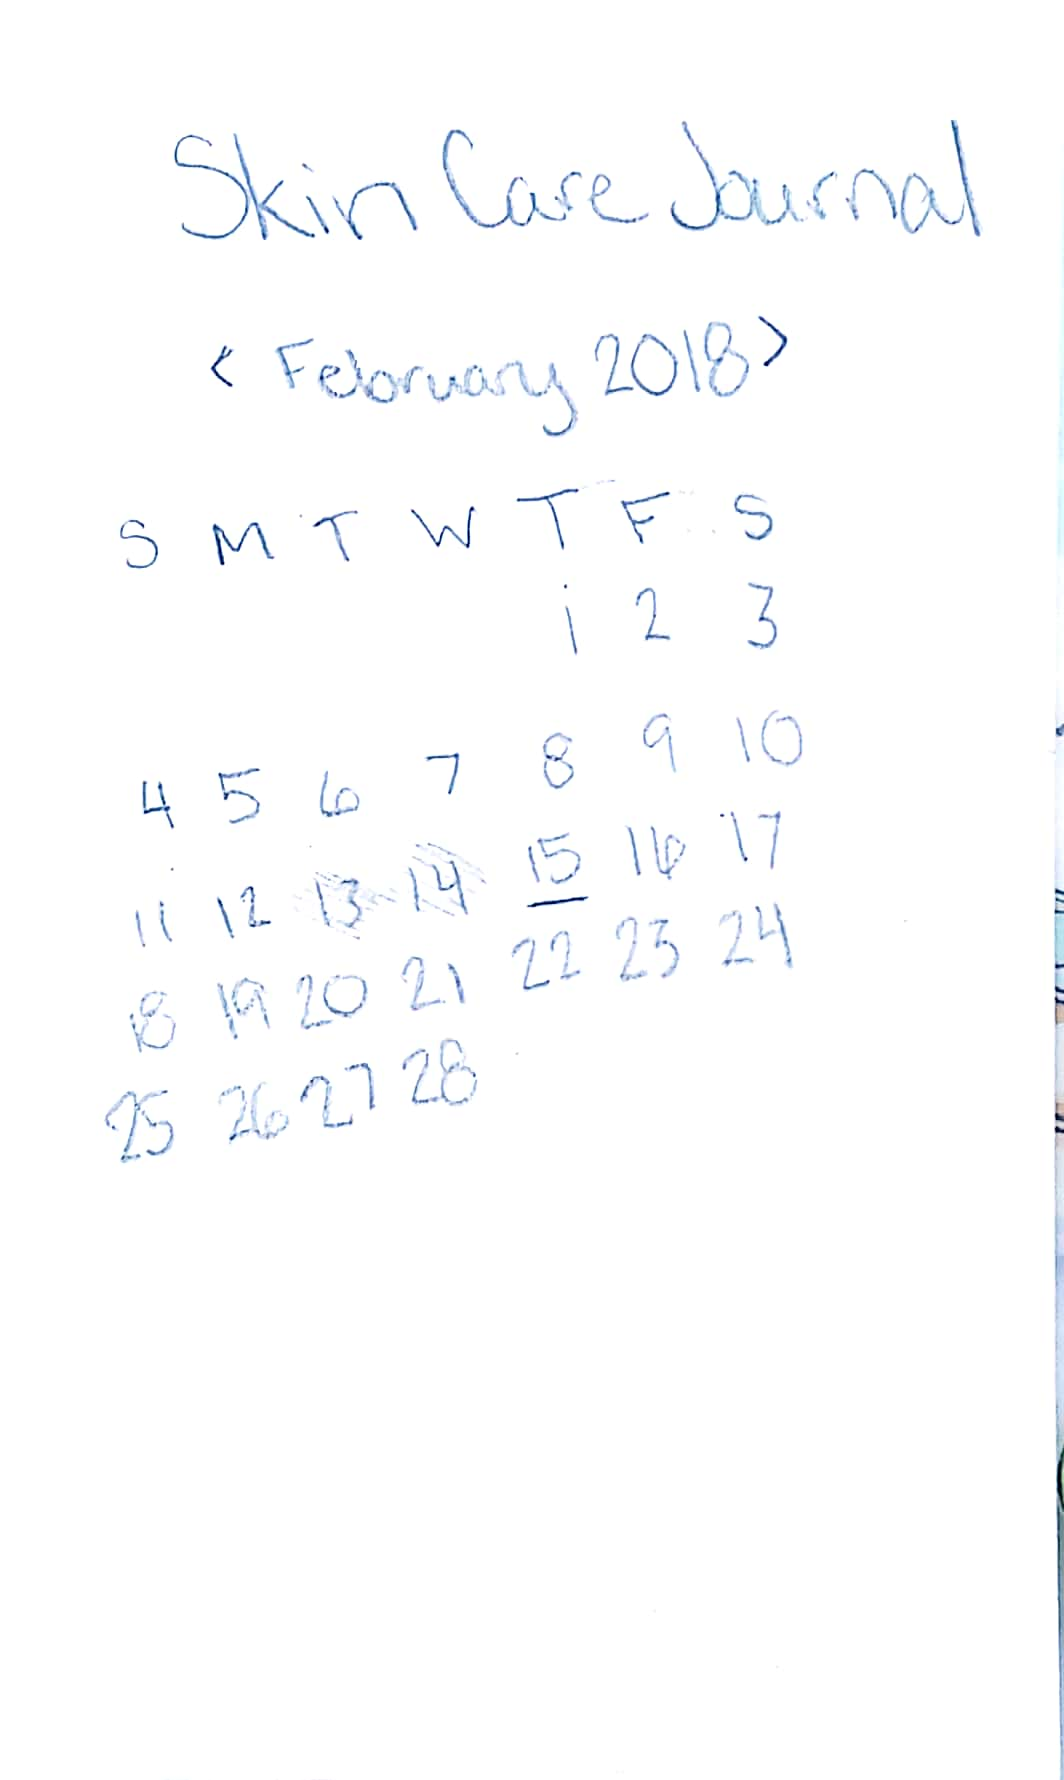 Skin Care Journal
< February 2018 >
S M T W T F S
1 2 3
4 5 6 7 8 9 10
11 12 13 14 15 16 17
18 19 20 21 22 23 24
25 26 27 28